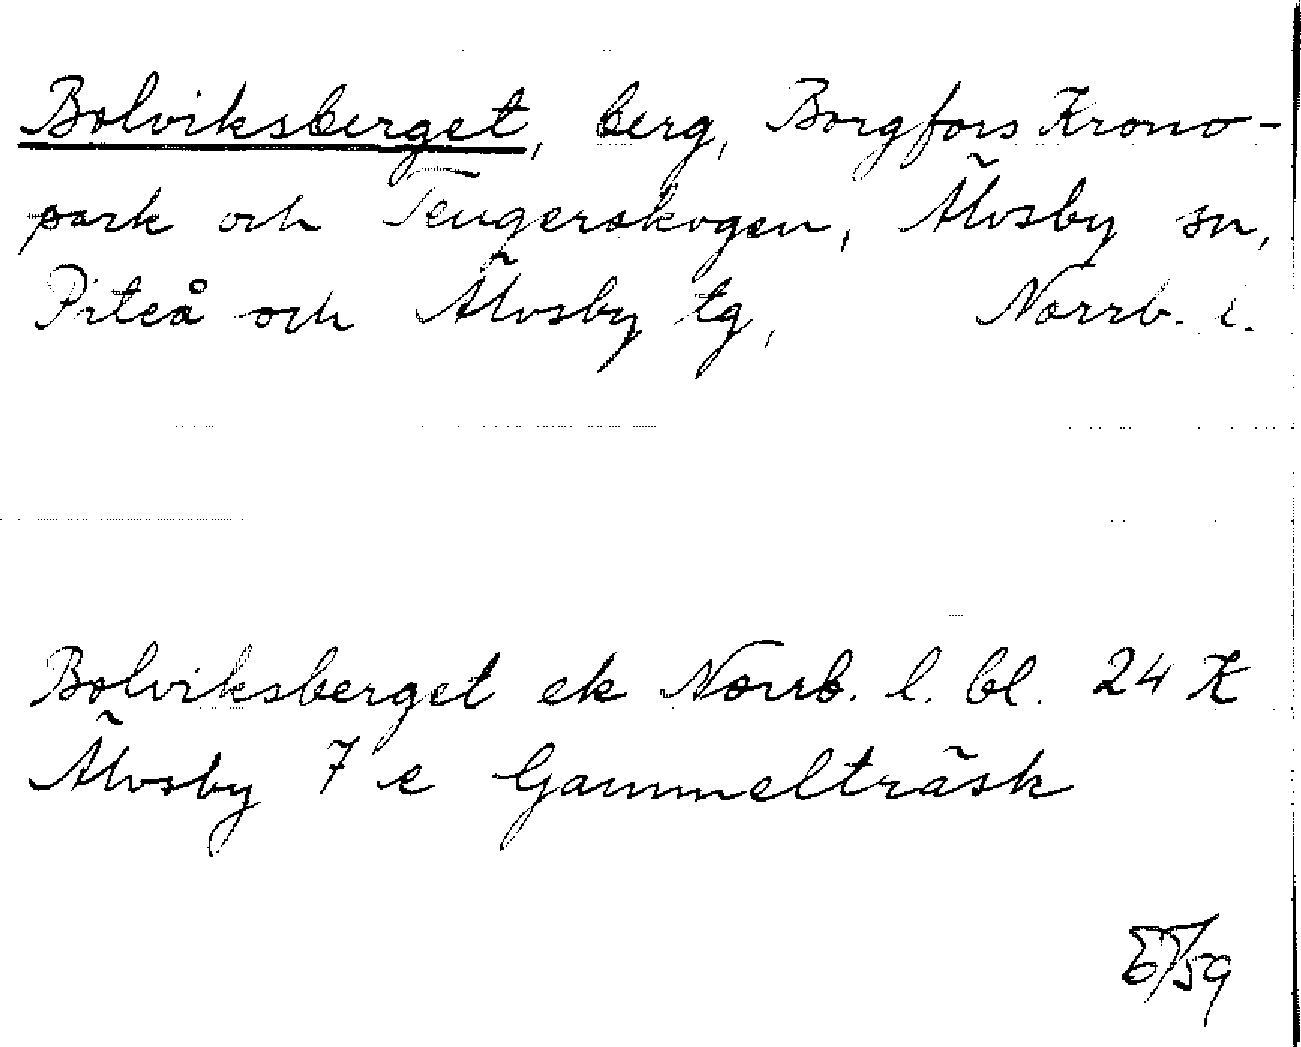 Bolviksberget, berg, Borgfors Krono-
park och Teugerskogen, Älvsby sn,
Piteå och Älvsby tg, Norrb. l.
Bolviksberget ek Norrb. l. bl. 24 K
Älvsby 7 e Gammelträsk